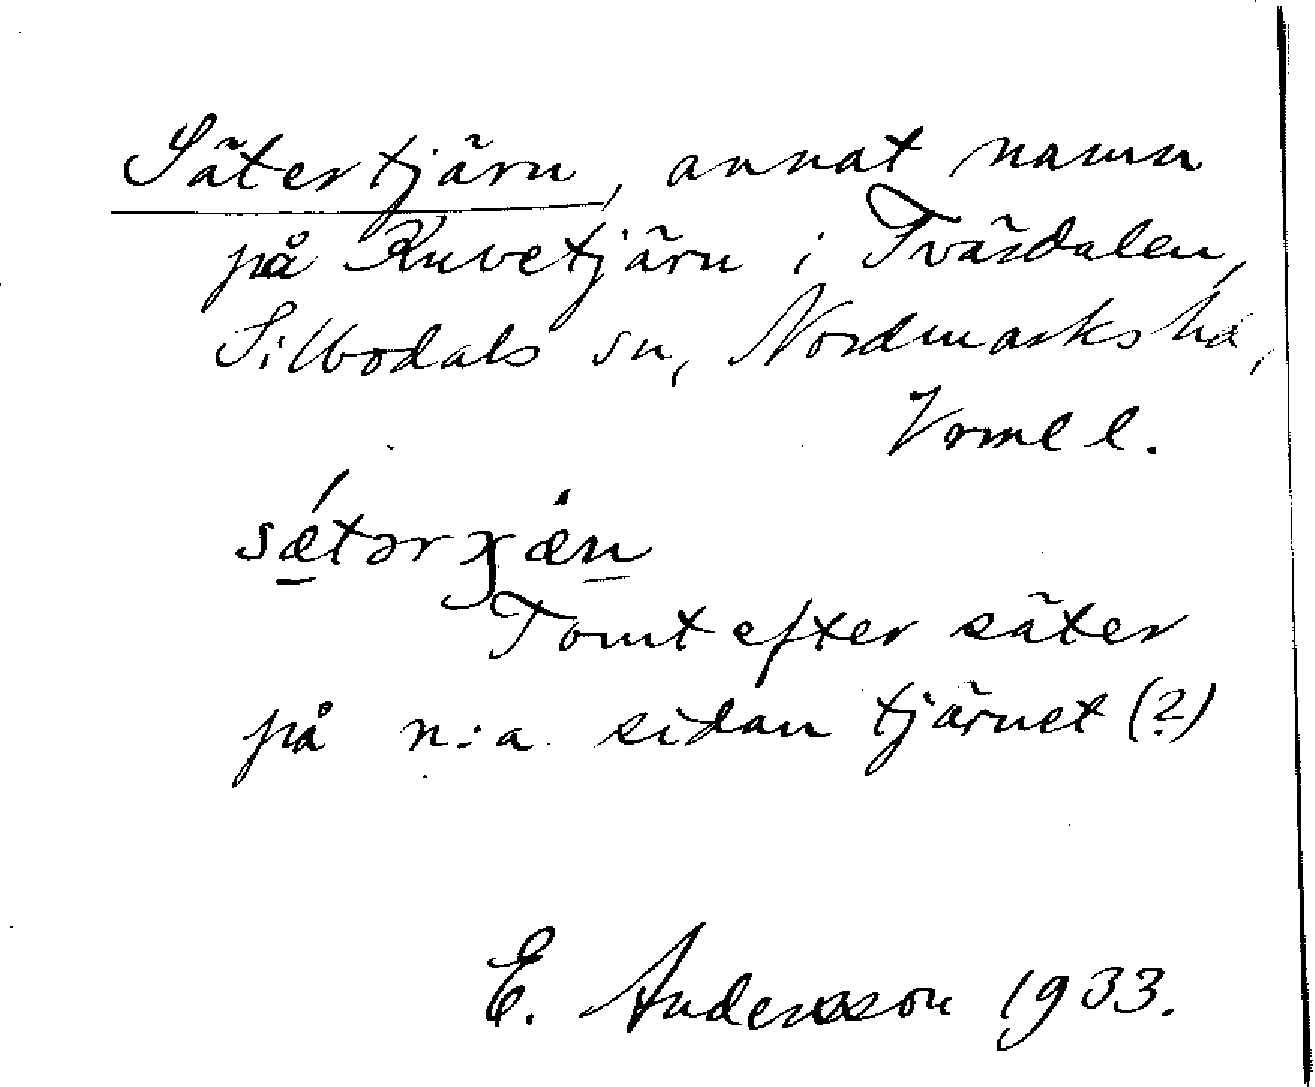 Sätertjärn, annat namn
på Ruvetjärn i Tväsdalen,
Silbodals sn, Nordmarks hd,
Vrml l.
Tomt efter säter
på n:a sidan tjärnet (?)
E. Andersson 1933.